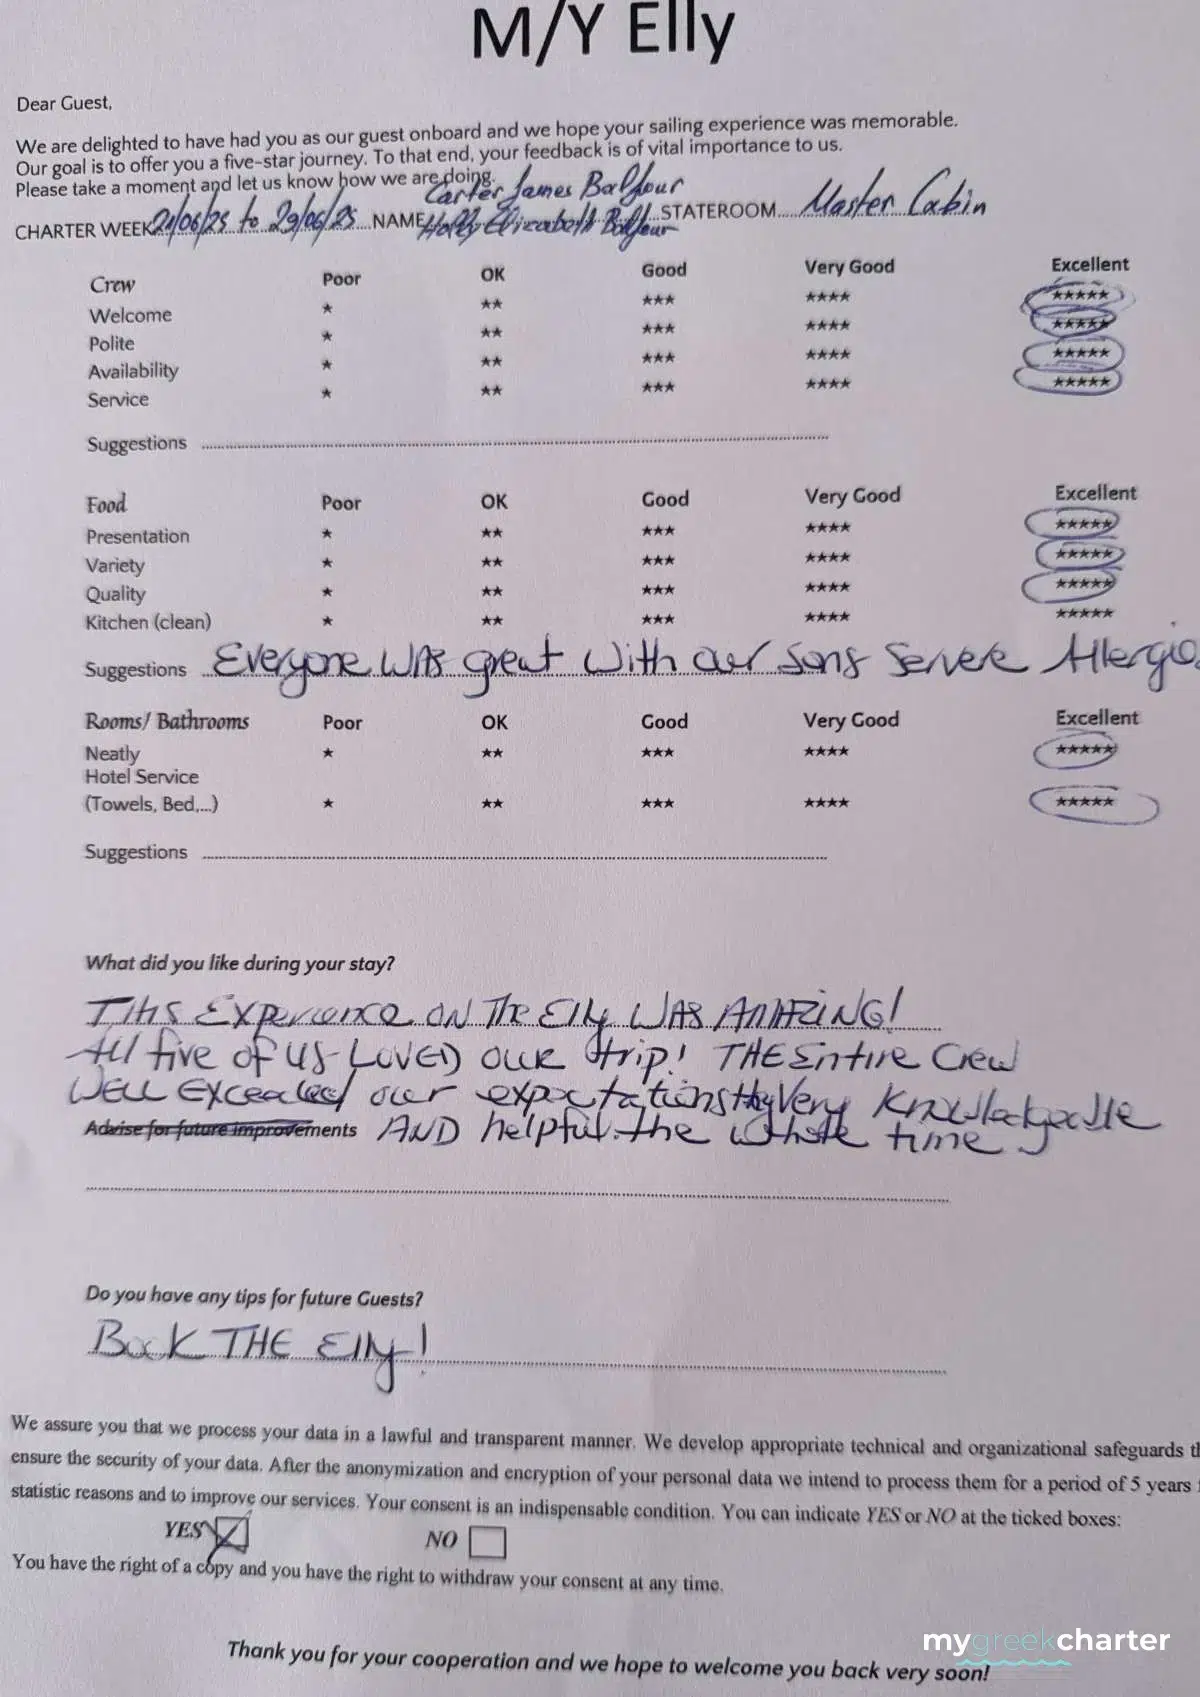 M/Y Elly
Dear Guest,
We are delighted to have had you as our guest onboard and we hope your sailing experience was memorable.
Our goal is to offer you a five-star journey. To that end, your feedback is of vital importance to us.
Please take a moment and let us know how we are doing.
Carter James Balfour
CHARTER WEEK 21/06/25 to 29/06/25 NAME Holly Elizabeth Balfour STATEROOM.... Master Cabin
Crew Poor OK Good Very Good Excellent
Welcome ★ ★★ ★★★ ★★★★ ★★★★★
Polite ★ ★★ ★★★ ★★★★ ★★★★★
Availability ★ ★★ ★★★ ★★★★ ★★★★★
Service ★ ★★ ★★★ ★★★★ ★★★★★
Suggestions
Food Poor OK Good Very Good Excellent
Presentation ★ ★★ ★★★ ★★★★ ★★★★★
Variety ★ ★★ ★★★ ★★★★ ★★★★★
Quality ★ ★★ ★★★ ★★★★ ★★★★★
Kitchen (clean) ★ ★★ ★★★ ★★★★ ★★★★★
Suggestions Everyone WAS great with our sons Servere Allergies
Rooms/ Bathrooms Poor OK Good Very Good Excellent
Neatly ★ ★★ ★★★ ★★★★ ★★★★★
Hotel Service
(Towels, Bed,...) ★ ★★ ★★★ ★★★★ ★★★★★
Suggestions
What did you like during your stay?
THIS EXPERIENCE ON The Elly WAS AMAZING!
All five of us LOVED our trip! THE Entire Crew
WELL Exceeded our expectations Very Knowledgeable
Advise for future improvements AND helpful the whole time
Do you have any tips for future Guests?
Book THE Elly!
We assure you that we process your data in a lawful and transparent manner. We develop appropriate technical and organizational safeguards
ensure the security of your data. After the anonymization and encryption of your personal data we intend to process them for a period of 5 years
statistic reasons and to improve our services. Your consent is an indispensable condition. You can indicate YES or NO at the ticked boxes:
YES NO
You have the right of a copy and you have the right to withdraw your consent at any time.
mygreekcharter
Thank you for your cooperation and we hope to welcome you back very soon!